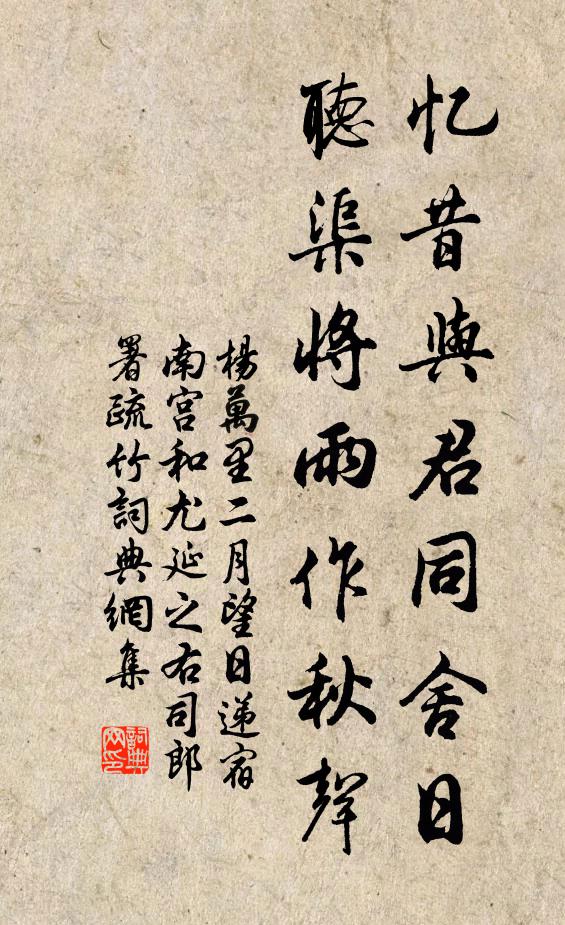 忆昔與君同舍日
聽渠將雨作秋聲
楊萬里二月望日递宿
南宫和尤延之右司郎
署疏竹詞典網集
詞典
网印